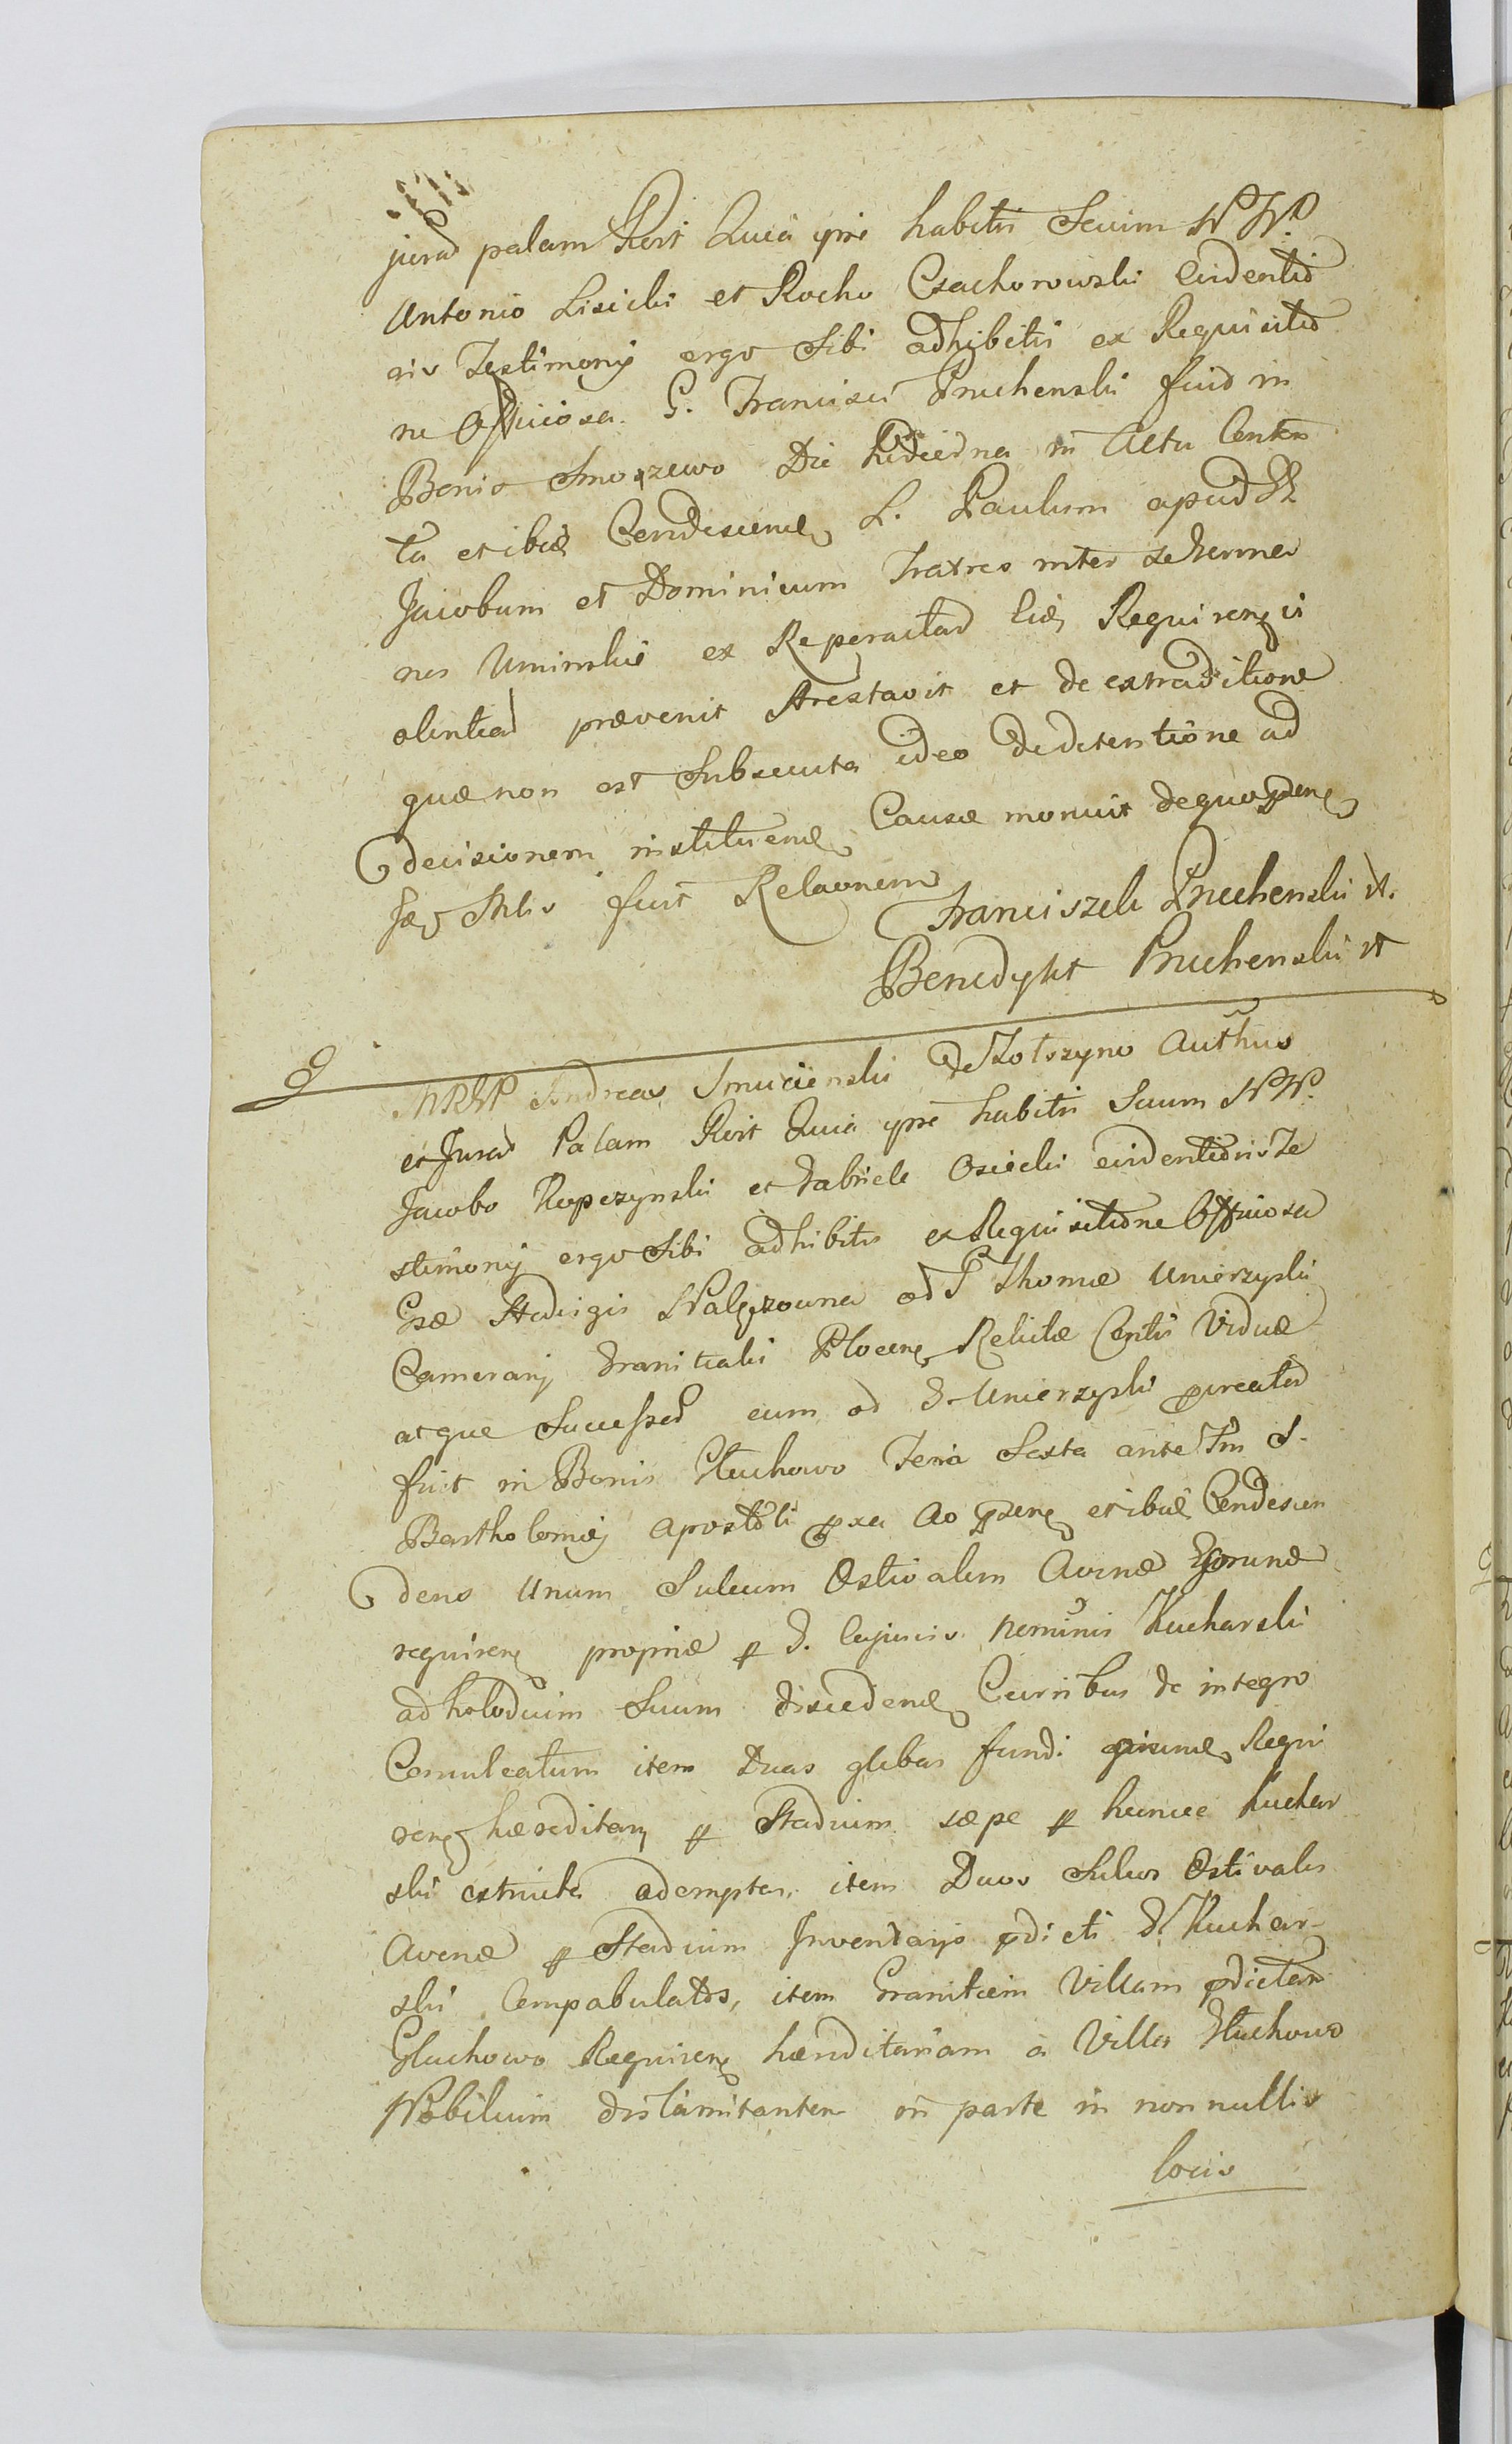 jurad palam Rec̃t Quia ipse habitis Secum NN.
Antonio Lisicki et Rocho Czachorowski Evidentio
ris Testimonij ergo Sibi adhibitis ex Requisitio
ne Officiosa G. Francisci Pruchenski fuit in
Bonis Smorzewo Die hodierna in Actu Conten
ta et ibid Condescend L. Paulum apud
Jacobum et Dominicum Fratres inter se Germa
nos Uminskie ex Reperactad Eid Requirenti
olentiad prævenit Arestavit et de extraditione
quæ non est Subsecuta ideo de detentione ad
decisionem instituend Causæ monuit de quo præsen
Sæ fuit Relaonem
Franciszek Pruchenski
Benedykt Pruchenski
MRGP Andreas Smucienski de Zolszyno Authus
et Jurad Palam Rec̃t Quia ipse habitis Secum NN.
Jacobo Kopczynski et Gabriele Osiecki evidentioris Te
stimonij ergo Sibi adhibitis ex Requisitione Officiosa
Gsæ Hedvigis ad G Thomæ Unierzyski
Camerarij Granitialis Plocen Relictæ Contis Viduæ
atque Successor cum od G. Unierzyski procreatad
fuit in Bonis Głuchowo Feria Sexta ante Fm S.
Bartholomæj Apostoli pxa Ao præsen et ibid Condescen
dens Unum Sulcum Æstivalem Avenæ
requiren propriæ p G. Cujusvis Nominis Kucharski
ad holoduim Suum discedend Curribus de integro
Conculcatum item Duas glebas fundi Requi
ren hæreditary p Stadium sæpe p hunce Kuchar
ski extructa adempta, item Duos Sulcos Æstivales
Avenæ p Stadium Inventarjo pdicti G. Kuchar-
ski Compabulatos, item Granitiem Villam pdictam
Głuchowo Requiren hæreditariam a Villa Głuchowo
Nobilium dislimitantem in parte in non nullis
locis